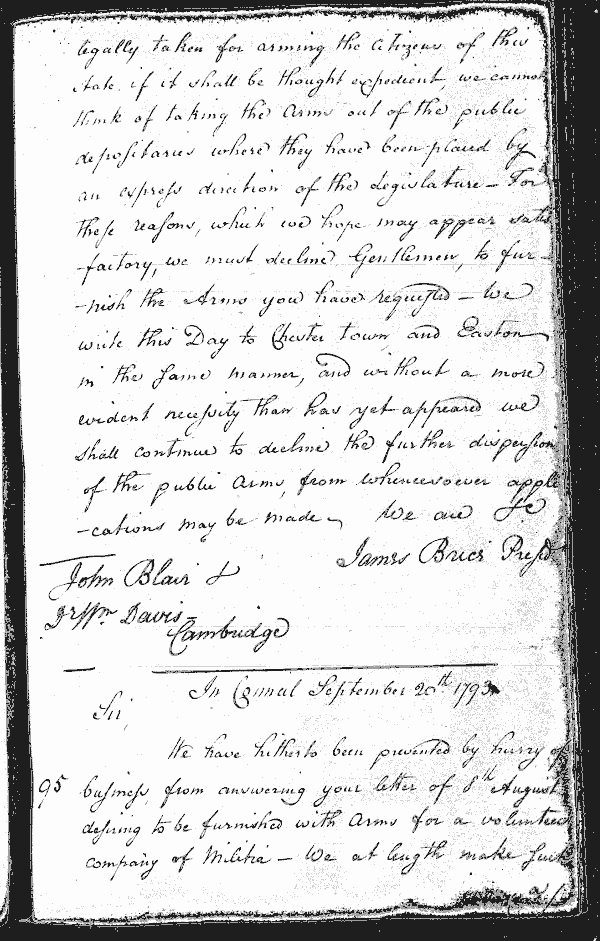 legally taken for arming the Citizens of this
State if it shall be thought expedient, we cannot
think of taking the Arms out of the public
depositaries where they have been placed by
an express direction of the Legislature — For
these reasons, which we hope may appear satis
-factory, we must decline Gentlemen, to fur-
-nish the Arms you have requested — We
write this Day to Chester town and Easton
in the same manner, and without a more
evident necessity than has yet appeared we
shall continue to decline the further dispersion
of the public Arms, from whencesoever appli
-cations may be made — We are &c
James Brice Presdt
John Blair &
Wm Davis
Cambridge
In Council September 20th 1793
Sir,
We have hitherto been prevented by hurry of
95 business, from answering your letter of 8th August
desiring to be furnished with Arms for a volunteer
company of Militia — We at length make such